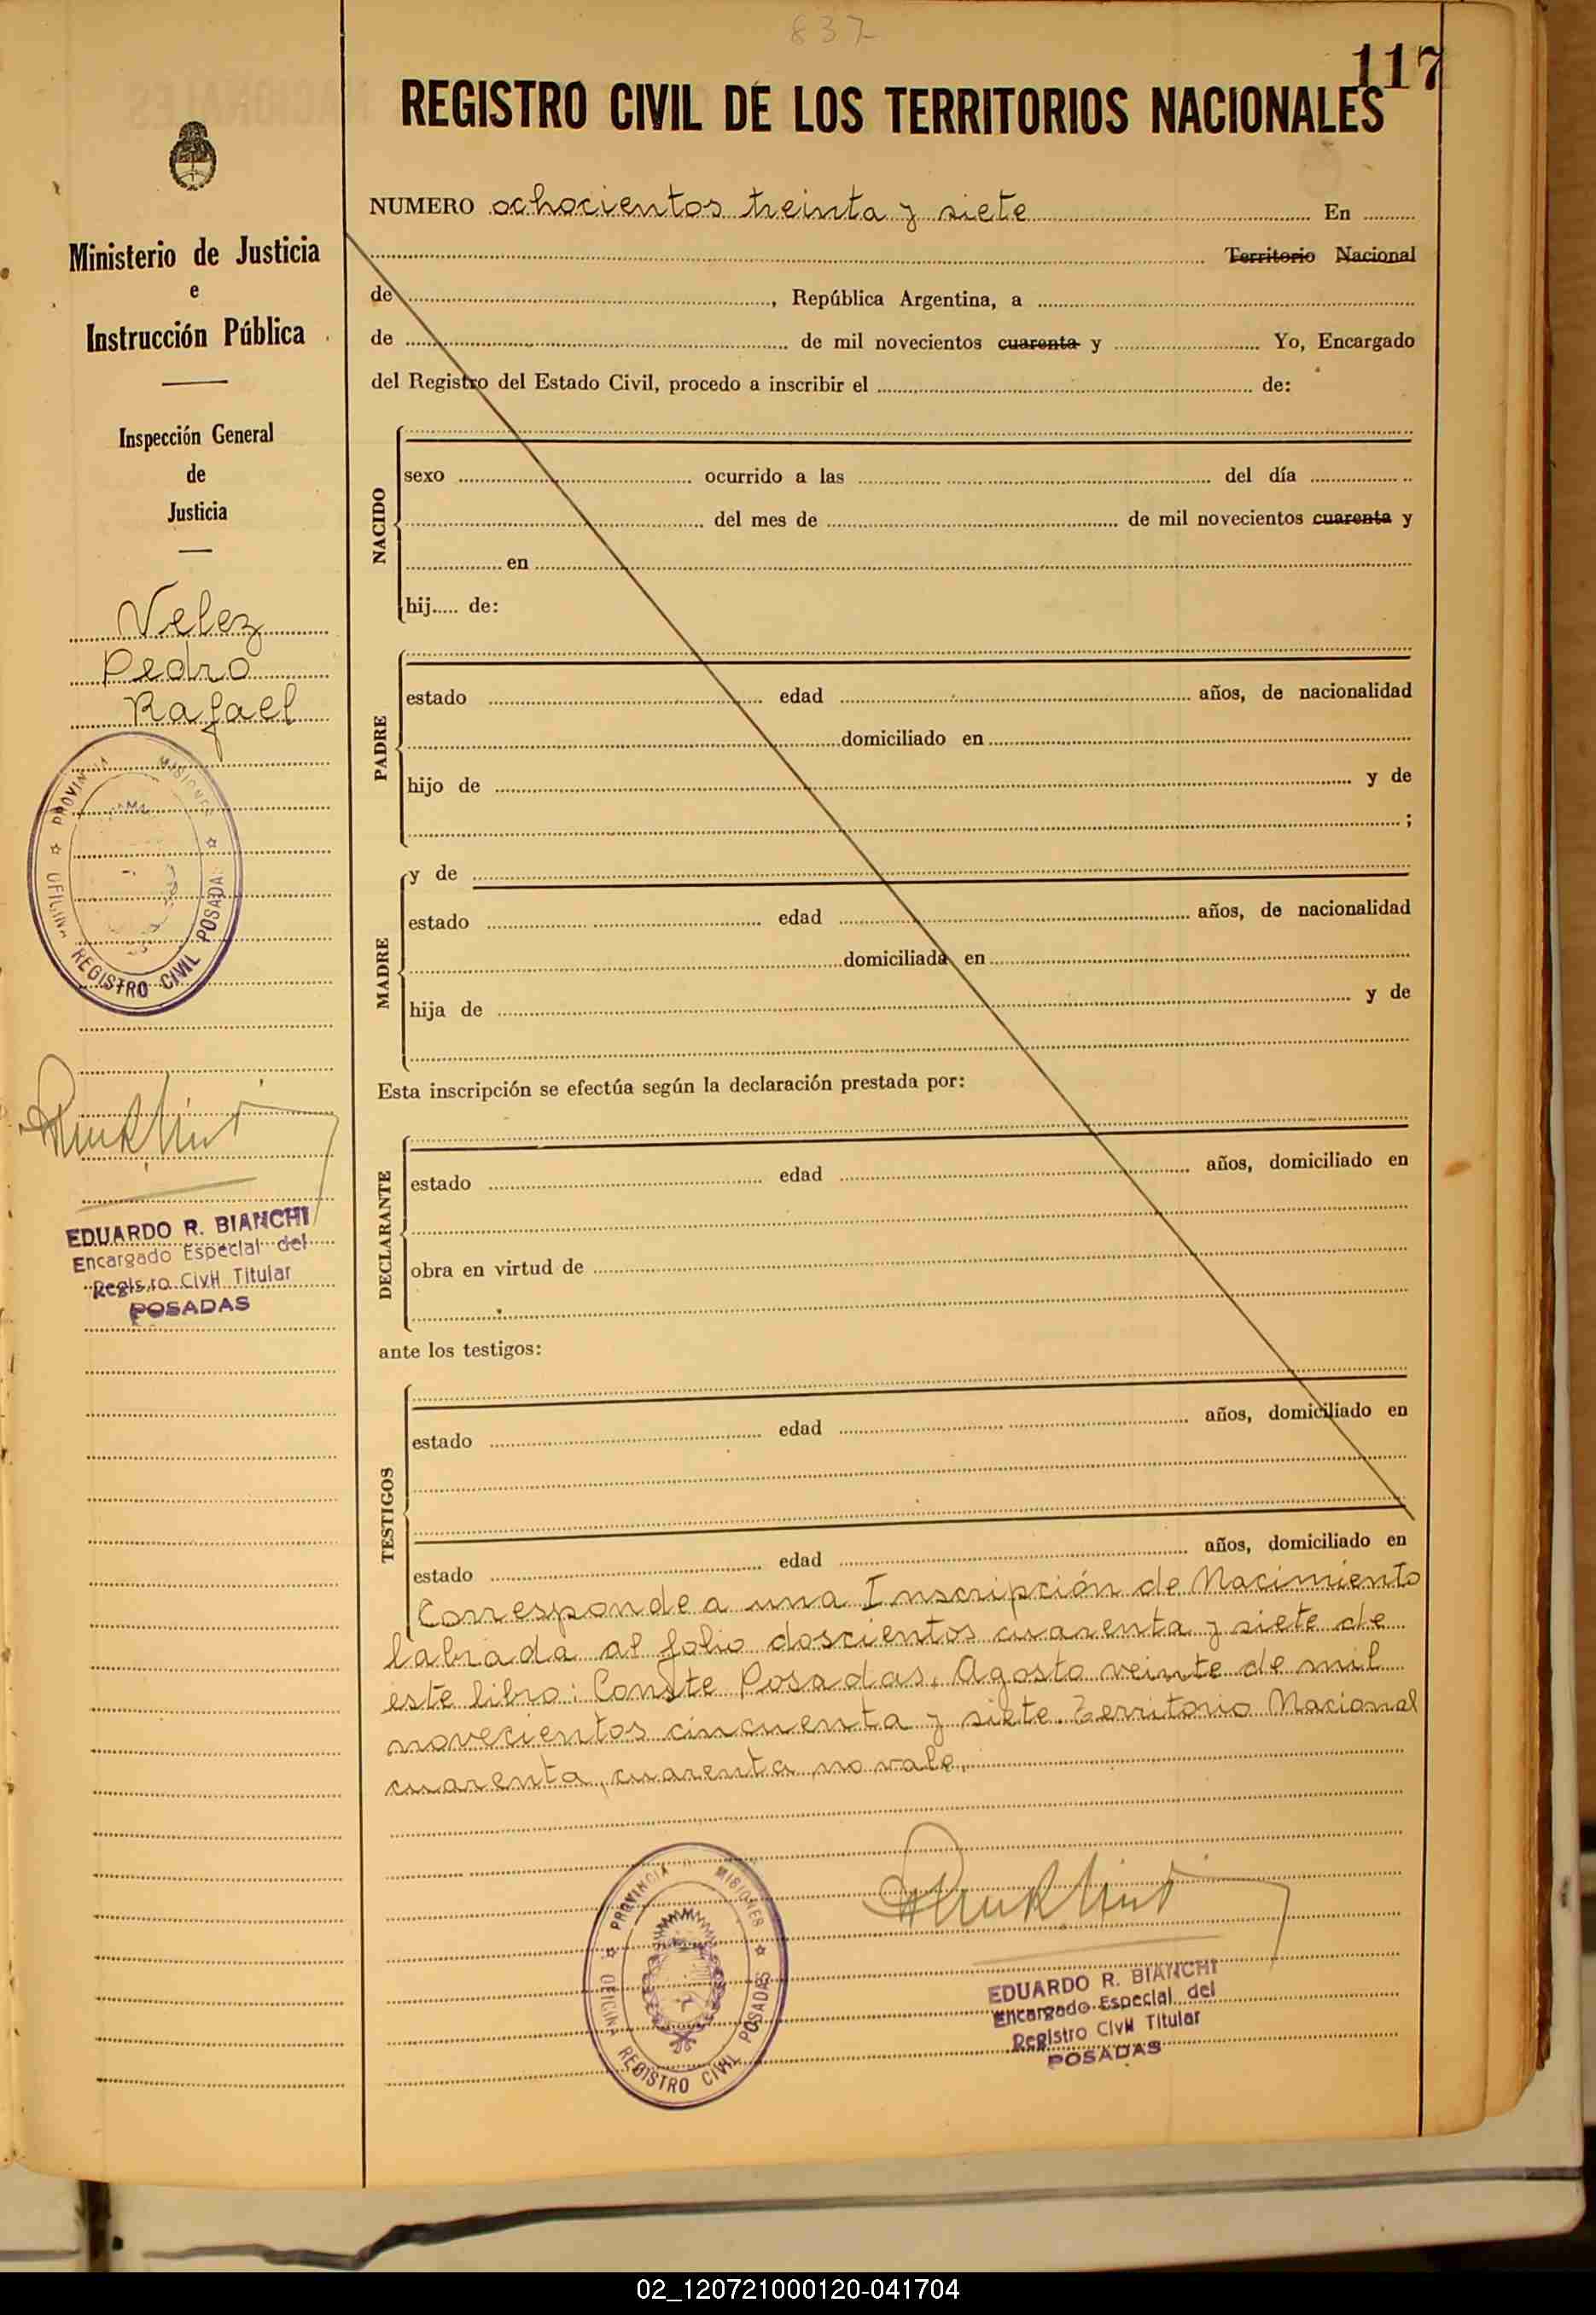 837
117
REGISTRO CIVIL DE LOS TERRITORIOS NACIONALES
Ministerio de Justicia
e
Instrucción Pública
Inspección General
de
Justicia
Velez
Pedro
Rafael
PROVINCIA MISIONES
OFICINA REGISTRO CIVIL POSADAS
EDUARDO R. BIANCHI
Encargado Especial del
Registro Civil Titular
POSADAS
NUMERO ochocientos treinta y siete En
Territorio Nacional
de , República Argentina, a
de de mil novecientos cuarenta y Yo, Encargado
del Registro del Estado Civil, procedo a inscribir el de:
NACIDO
sexo ocurrido a las del día
del mes de de mil novecientos cuarenta y
en
hij..... de:
PADRE
estado edad años, de nacionalidad
domiciliado en
hijo de y de
;
MADRE
y de
estado edad años, de nacionalidad
domiciliada en
hija de y de
Esta inscripción se efectúa según la declaración prestada por:
DECLARANTE
estado edad años, domiciliado en
obra en virtud de
ante los testigos:
TESTIGOS
estado edad años, domiciliado en
estado edad años, domiciliado en
Corresponde a una Inscripción de Nacimiento
labrada al folio doscientos cuarenta y siete de
este libro: Conste Posadas, Agosto veinte de mil
novecientos cincuenta y siete. Territorio Nacional
cuarenta, cuarenta no vale.
PROVINCIA MISIONES
OFICINA REGISTRO CIVIL POSADAS
EDUARDO R. BIANCHI
Encargado Especial del
Registro Civil Titular
POSADAS
02_120721000120-041704